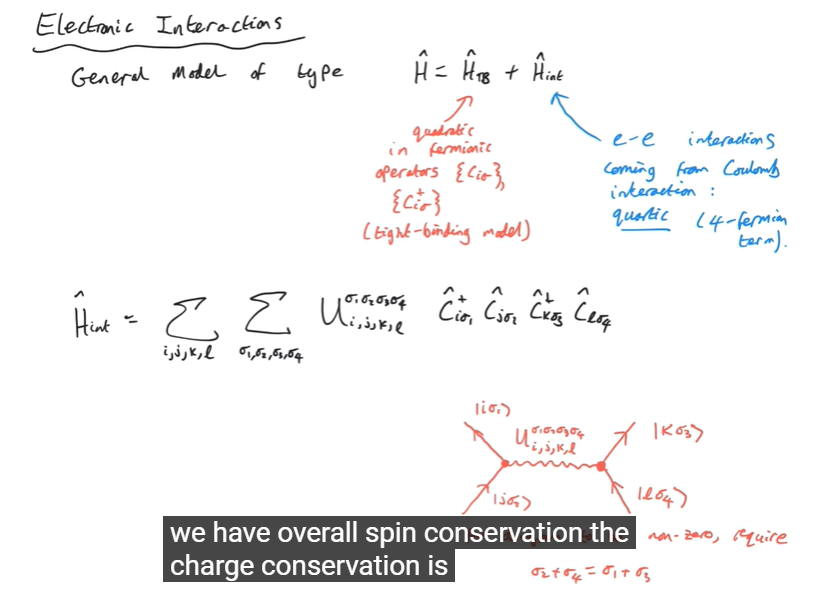 Electronic Interactions
General Model of type Ĥ = Ĥ_TB + Ĥ_int
quadratic
in fermionic
operators {C_iσ},
{C⁺_iσ}
(tight-binding model)
e-e interactions
coming from Coulomb
interaction :
quartic (4-fermion
term).
Ĥ_int = Σ_{i,j,k,l} Σ_{σ₁,σ₂,σ₃,σ₄} U_{i,j,k,l}^{σ₁σ₂σ₃σ₄} Ĉ⁺_{iσ₁} Ĉ_{jσ₂} Ĉ⁺_{kσ₃} Ĉ_{lσ₄}
|iσ₁⟩
U_{i,j,k,l}^{σ₁σ₂σ₃σ₄}
|kσ₃⟩
|jσ₂⟩
|lσ₄⟩
non-zero, require
σ₂+σ₄ = σ₁+σ₃
we have overall spin conservation the
charge conservation is